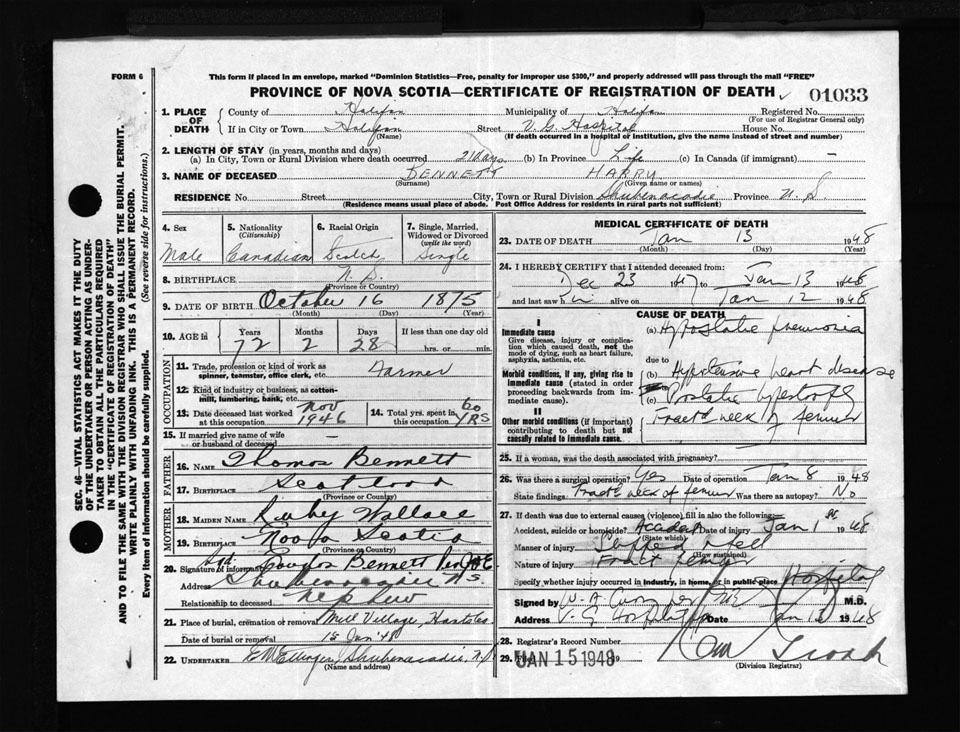 FORM 6
This form if placed in an envelope, marked "Dominion Statistics—Free, penalty for improper use $300," and properly addressed will pass through the mail "FREE"
PROVINCE OF NOVA SCOTIA—CERTIFICATE OF REGISTRATION OF DEATH
01033
SEC. 46—VITAL STATISTICS ACT MAKES IT THE DUTY
OF THE UNDERTAKER OR PERSON ACTING AS UNDER-
TAKER TO OBTAIN ALL THE PARTICULARS REQUIRED
IN THE "CERTIFICATE OF REGISTRATION OF DEATH"
AND TO FILE THE SAME WITH THE DIVISION REGISTRAR WHO SHALL ISSUE THE BURIAL PERMIT.
WRITE PLAINLY WITH UNFADING INK. THIS IS A PERMANENT RECORD.
Every item of information should be carefully supplied. (See reverse side for instructions.)
1. PLACE OF DEATH
County of Halifax Municipality of Halifax Registered No.
(For use of Registrar General only)
If in City or Town Halifax Street V. G. Hospital House No.
(Name) (If death occurred in a hospital or institution, give the name instead of street and number)
2. LENGTH OF STAY (in years, months and days)
(a) In City, Town or Rural Division where death occurred 21 days (b) In Province Life (c) In Canada (if immigrant) —
3. NAME OF DECEASED BENNETT HARRY
(Surname) (Given name or names)
RESIDENCE No. Street City, Town or Rural Division Shubenacadie Province N. S.
(Residence means usual place of abode. Post Office Address for residents in rural parts not sufficient)
4. Sex Male
5. Nationality (Citizenship) Canadian
6. Racial Origin Scotch
7. Single, Married, Widowed or Divorced (write the word) Single
8. BIRTHPLACE N. S.
(Province or Country)
9. DATE OF BIRTH October 16 1875
(Month) (Date) (Year)
10. AGE in Years Months Days If less than one day old
72 2 28 hrs. or min.
OCCUPATION
11. Trade, profession or kind of work as spinner, teamster, office clerk, etc. Farmer
12. Kind of industry or business, as cotton-mill, lumbering, bank, etc.
13. Date deceased last worked at this occupation Nov 1946
14. Total yrs. spent in this occupation 60 YRS
15. If married give name of wife or husband of deceased —
FATHER
16. NAME Thomas Bennett
17. BIRTHPLACE Scotland
(Province or Country)
MOTHER
18. MAIDEN NAME Ruby Wallace
19. BIRTHPLACE Nova Scotia
(Province or Country)
20. Signature of informant Sgd. Douglas Bennett
Address Shubenacadie N S
Relationship to deceased nephew
21. Place of burial, cremation or removal Mill Village, Hants Co.
Date of burial or removal 15 Jan '48
22. UNDERTAKER Shubenacadie, N.S.
(Name and address)
MEDICAL CERTIFICATE OF DEATH
23. DATE OF DEATH Jan 13 1948
(Month) (Day) (Year)
24. I HEREBY CERTIFY that I attended deceased from:
Dec 23 1947 to Jan 13 1948
and last saw h im alive on Jan 12 1948
CAUSE OF DEATH
I
Immediate cause
Give disease, injury or complication which caused death, not the mode of dying, such as heart failure, asphyxia, asthenia, etc.
(a) Hypostatic pneumonia
due to
Morbid conditions, if any, giving rise to immediate cause (stated in order proceeding backwards from immediate cause).
(b) Hypertensive heart disease
(c) Prostatic hypertrophy
II
Other morbid conditions (if important) contributing to death but not causally related to immediate cause.
Fract neck of femur
25. If a woman, was the death associated with pregnancy?
26. Was there a surgical operation? Yes Date of operation Jan 8 1948
State findings Fract neck of femur Was there an autopsy? No
27. If death was due to external causes (violence), fill in also the following:
Accident, suicide or homicide? Accident Date of injury Jan 1 1948
(State which)
Manner of injury Slipped & fell
(How sustained)
Nature of injury Fract femur
Specify whether injury occurred in industry, in home, or in public place Hospital
Signed by M.D.
V. G. Hospital Date Jan 13 1948
28. Registrar's Record Number
29. Filed JAN 15 1948 19
(Division Registrar)